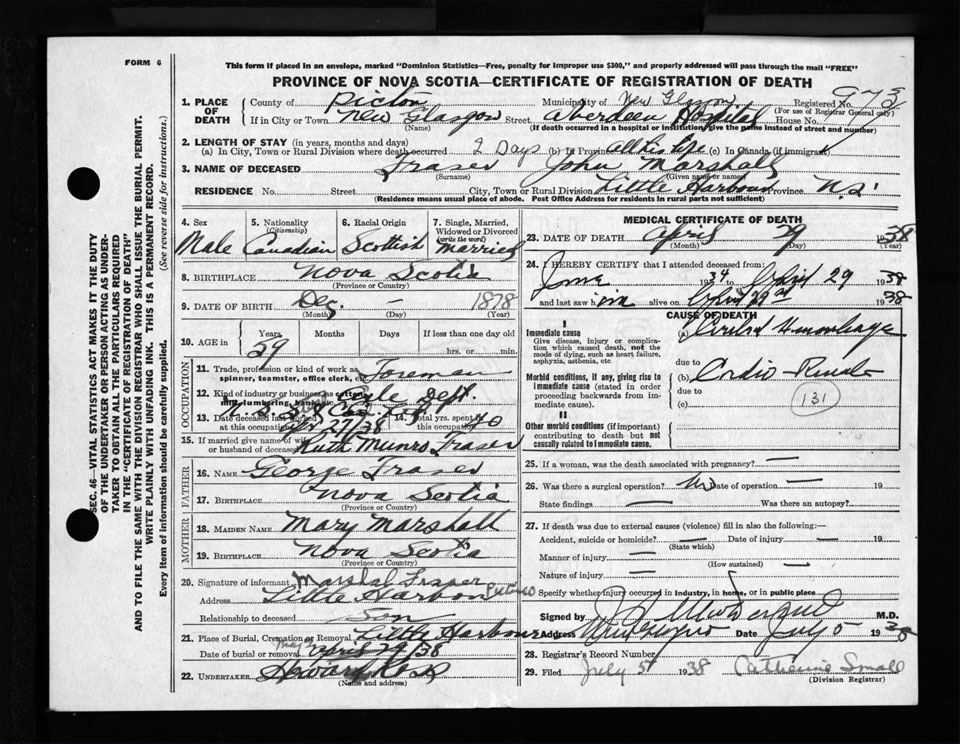 FORM 6
This form if placed in an envelope, marked "Dominion Statistics—Free, penalty for improper use $300," and properly addressed will pass through the mail "FREE"
PROVINCE OF NOVA SCOTIA—CERTIFICATE OF REGISTRATION OF DEATH
973
1. PLACE OF DEATH { County of Pictou Municipality of New Glasgow Registered No.
(For use of Registrar General only)
If in City or Town New Glasgow Street Aberdeen Hospital House No.
(Name) (If death occurred in a hospital or institution, give the name instead of street and number)
2. LENGTH OF STAY (in years, months and days)
(a) In City, Town or Rural Division where death occurred 2 Days (b) In Province all his life (c) In Canada (if immigrant)
3. NAME OF DECEASED Fraser John Marshall
(Surname) (Given name or names)
RESIDENCE No. Street City, Town or Rural Division Little Harbour Province N.S.
(Residence means usual place of abode. Post Office Address for residents in rural parts not sufficient)
4. Sex Male
5. Nationality (Citizenship) Canadian
6. Racial Origin Scottish
7. Single, Married, Widowed or Divorced (write the word) Married
8. BIRTHPLACE Nova Scotia
(Province or Country)
9. DATE OF BIRTH Dec. — 1878
(Month) (Day) (Year)
10. AGE in { Years Months Days If less than one day old
59 hrs. or min.
OCCUPATION
11. Trade, profession or kind of work as spinner, teamster, office clerk, etc. Foreman
12. Kind of industry or business as cotton mill, lumbering, bank, etc. Dept.
13. Date deceased last worked at this occupation 27/38
14. Total yrs. spent in this occupation 40
15. If married give name of wife or husband of deceased Ruth Munro Fraser
FATHER
16. NAME George Fraser
17. BIRTHPLACE Nova Scotia
(Province or Country)
MOTHER
18. MAIDEN NAME Mary Marshall
19. BIRTHPLACE Nova Scotia
(Province or Country)
20. Signature of informant Marshal Fraser
Address Little Harbour
Relationship to deceased Son
21. Place of Burial, Cremation or Removal Little Harbour
Date of burial or removal April 29/38
22. UNDERTAKER
(Name and address)
MEDICAL CERTIFICATE OF DEATH
23. DATE OF DEATH April 29 1938
(Month) (Day) (Year)
24. I HEREBY CERTIFY that I attended deceased from:
June 1934 to April 29 1938
and last saw him alive on April 1938
CAUSE OF DEATH
I
Immediate cause
Give disease, injury or complication which caused death, not the mode of dying, such as heart failure, asphyxia, asthenia, etc.
(a) Hemorrhage
due to
Morbid conditions, if any, giving rise to immediate cause (stated in order proceeding backwards from immediate cause).
(b) Cardio-Renal
due to
(c)
131
II
Other morbid conditions (if important) contributing to death but not causally related to immediate cause.
25. If a woman, was the death associated with pregnancy? —
26. Was there a surgical operation? No Date of operation — 19
State findings — Was there an autopsy?
27. If death was due to external causes (violence) fill in also the following:—
Accident, suicide or homicide? — Date of injury — 19
(State which)
Manner of injury —
(How sustained)
Nature of injury —
Specify whether injury occurred in industry, in home, or in public place
Signed by M.D.
Address Date July 5 1938
28. Registrar's Record Number
29. Filed July 5 1938 Catherine Small
(Division Registrar)
SEC. 46—VITAL STATISTICS ACT MAKES IT THE DUTY
OF THE UNDERTAKER OR PERSON ACTING AS UNDERTAKER TO OBTAIN ALL THE PARTICULARS REQUIRED
IN THE "CERTIFICATE OF REGISTRATION OF DEATH"
AND TO FILE THE SAME WITH THE DIVISION REGISTRAR WHO SHALL ISSUE THE BURIAL PERMIT.
WRITE PLAINLY WITH UNFADING INK. THIS IS A PERMANENT RECORD.
Every item of information should be carefully supplied. (See reverse side for instructions.)